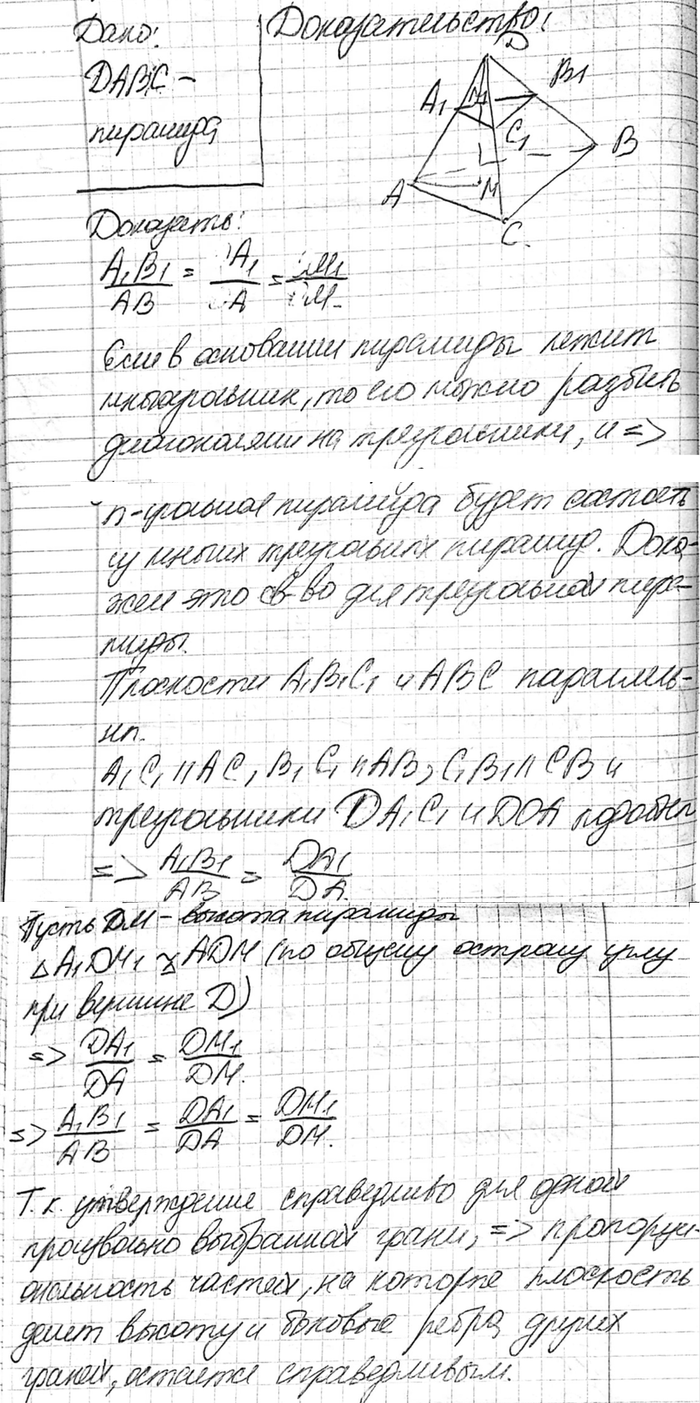 Дано:
DABC –
пирамида
Доказательство:
D
A1
M1
B1
C1
B
A
M
C.
Доказать:
A1B1/AB = A1/A = M1/M
Если в основании пирамиды лежит
многоугольник, то его можно разбить
диагоналями на треугольники, и =>
n-угольная пирамида будет состоять
из треугольных пирамид. Дока-
жем это св-во для треугольной пира-
миды.
Плоскости A1B1C1 и ABC параллель-
ны.
A1C1 II AC, B1C1 II AB, C1B1 II CB и
треугольники DA1C1 и DOA подобны
=> A1B1/AB = DA1/DA
Пусть DM – высота пирамиды
△ A1DM1 ~ ADM (по общему острому углу
при вершине D)
=> DA1/DA = DM1/DM.
=> A1B1/AB = DA1/DA = DM1/DM.
Т.к. утверждение справедливо для одной
произвольно выбранной грани, => пропорци-
ональность частей, на которые плоскость
делит высоту и боковые ребра других
граней, остается справедливым.